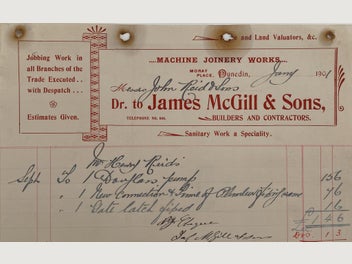 and Land Valuators, &c.
Jobbing Work in
all Branches of the
Trade Executed
with Despatch
Estimates Given.
MACHINE JOINERY WORKS,
MORAY
PLACE, Dunedin, Jany 1901
Messrs John Reid & Sons
Dr. to James McGill & Sons,
TELEPHONE NO.
BUILDERS AND CONTRACTORS.
Sanitary Work a Speciality.
Mr Harry Reids
Sept To 1 pump 15 6
" 1 New Connection & 7 6
" 1 Gate latch fixed 1 6
£1 4 6
By Cheque
Jas McGill & Sons